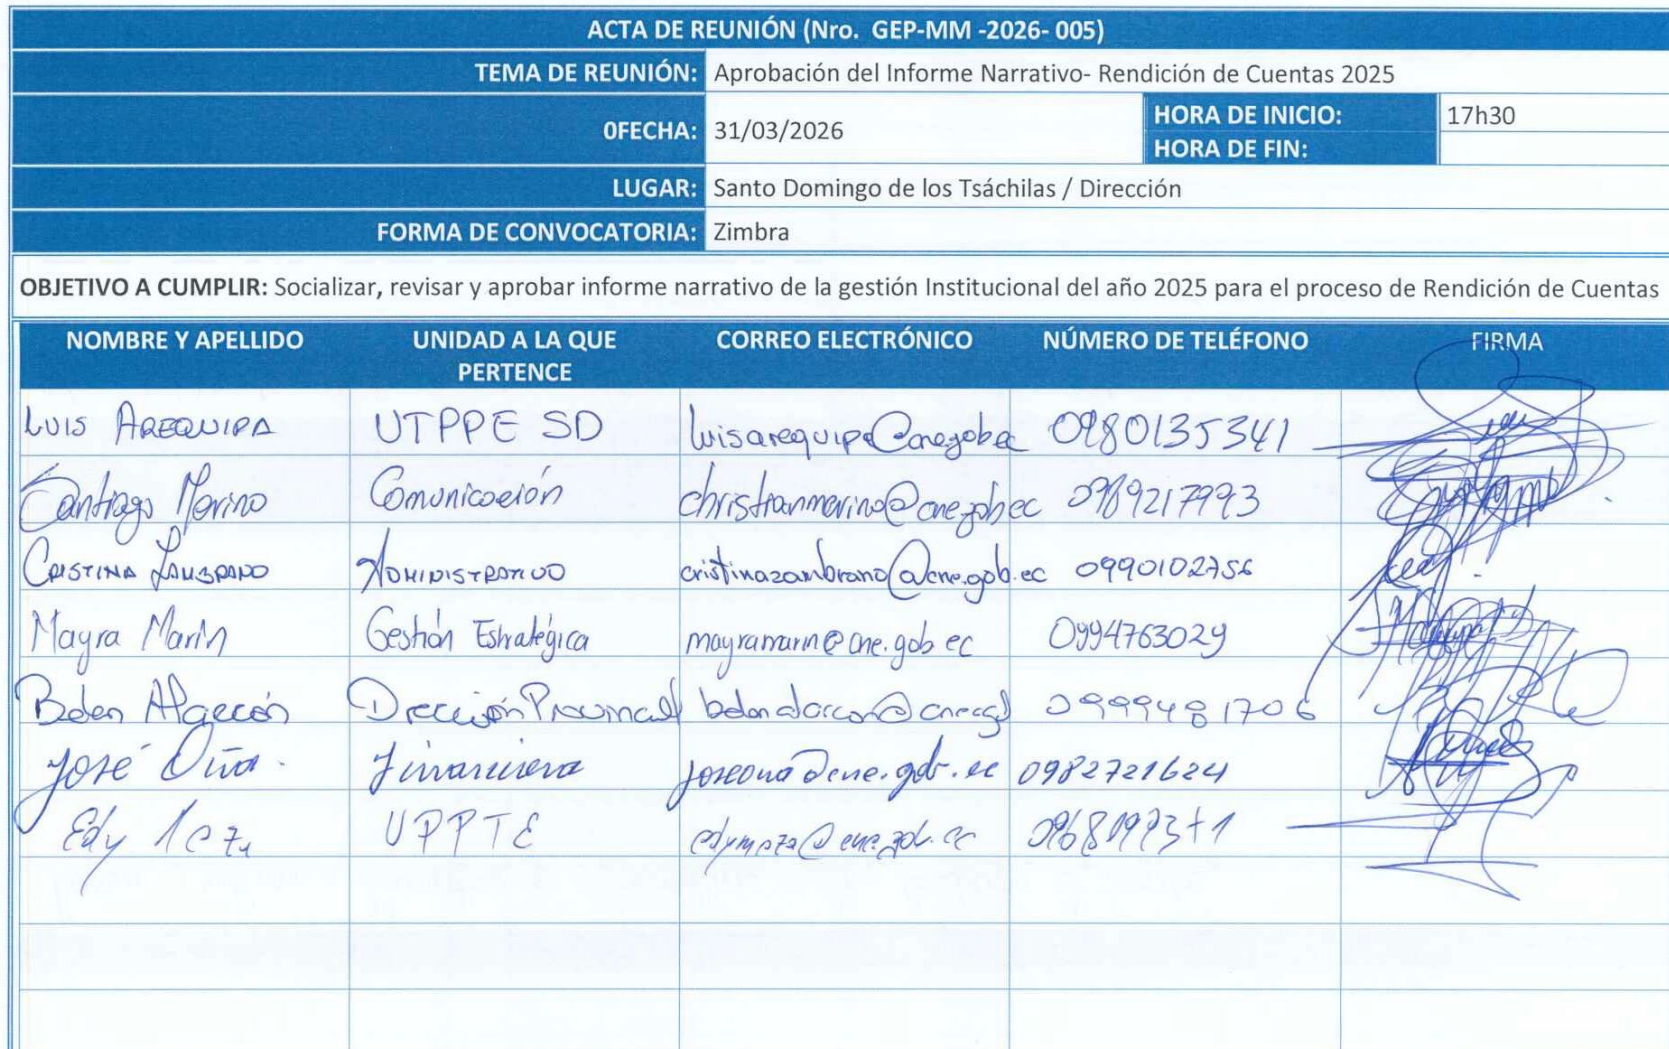 ACTA DE REUNIÓN (Nro. GEP-MM -2026- 005)
TEMA DE REUNIÓN: Aprobación del Informe Narrativo- Rendición de Cuentas 2025
0FECHA: 31/03/2026 HORA DE INICIO: 17h30
HORA DE FIN:
LUGAR: Santo Domingo de los Tsáchilas / Dirección
FORMA DE CONVOCATORIA: Zimbra
OBJETIVO A CUMPLIR: Socializar, revisar y aprobar informe narrativo de la gestión Institucional del año 2025 para el proceso de Rendición de Cuentas
NOMBRE Y APELLIDO UNIDAD A LA QUE PERTENCE CORREO ELECTRÓNICO NÚMERO DE TELÉFONO FIRMA
LUIS AREQUIPA UTPPE SD luisarequipa@cnegobec 0980135341
Santiago Merino Comunicación christianmerino@cnegobec 0989217993
CRISTINA ZAMBRANO ADMINISTRATIVO cristinazambrano@cne.gob.ec 0990102756
Mayra Marín Gestión Estratégica mayramarin@cne.gob ec 0994763029
Belen Alarcón Dirección Provincial 0999481706
José Oña. Financiera joseona@cne.gob.ec 0982721624
Edy UPPTE edymoza@cne.gob.ec